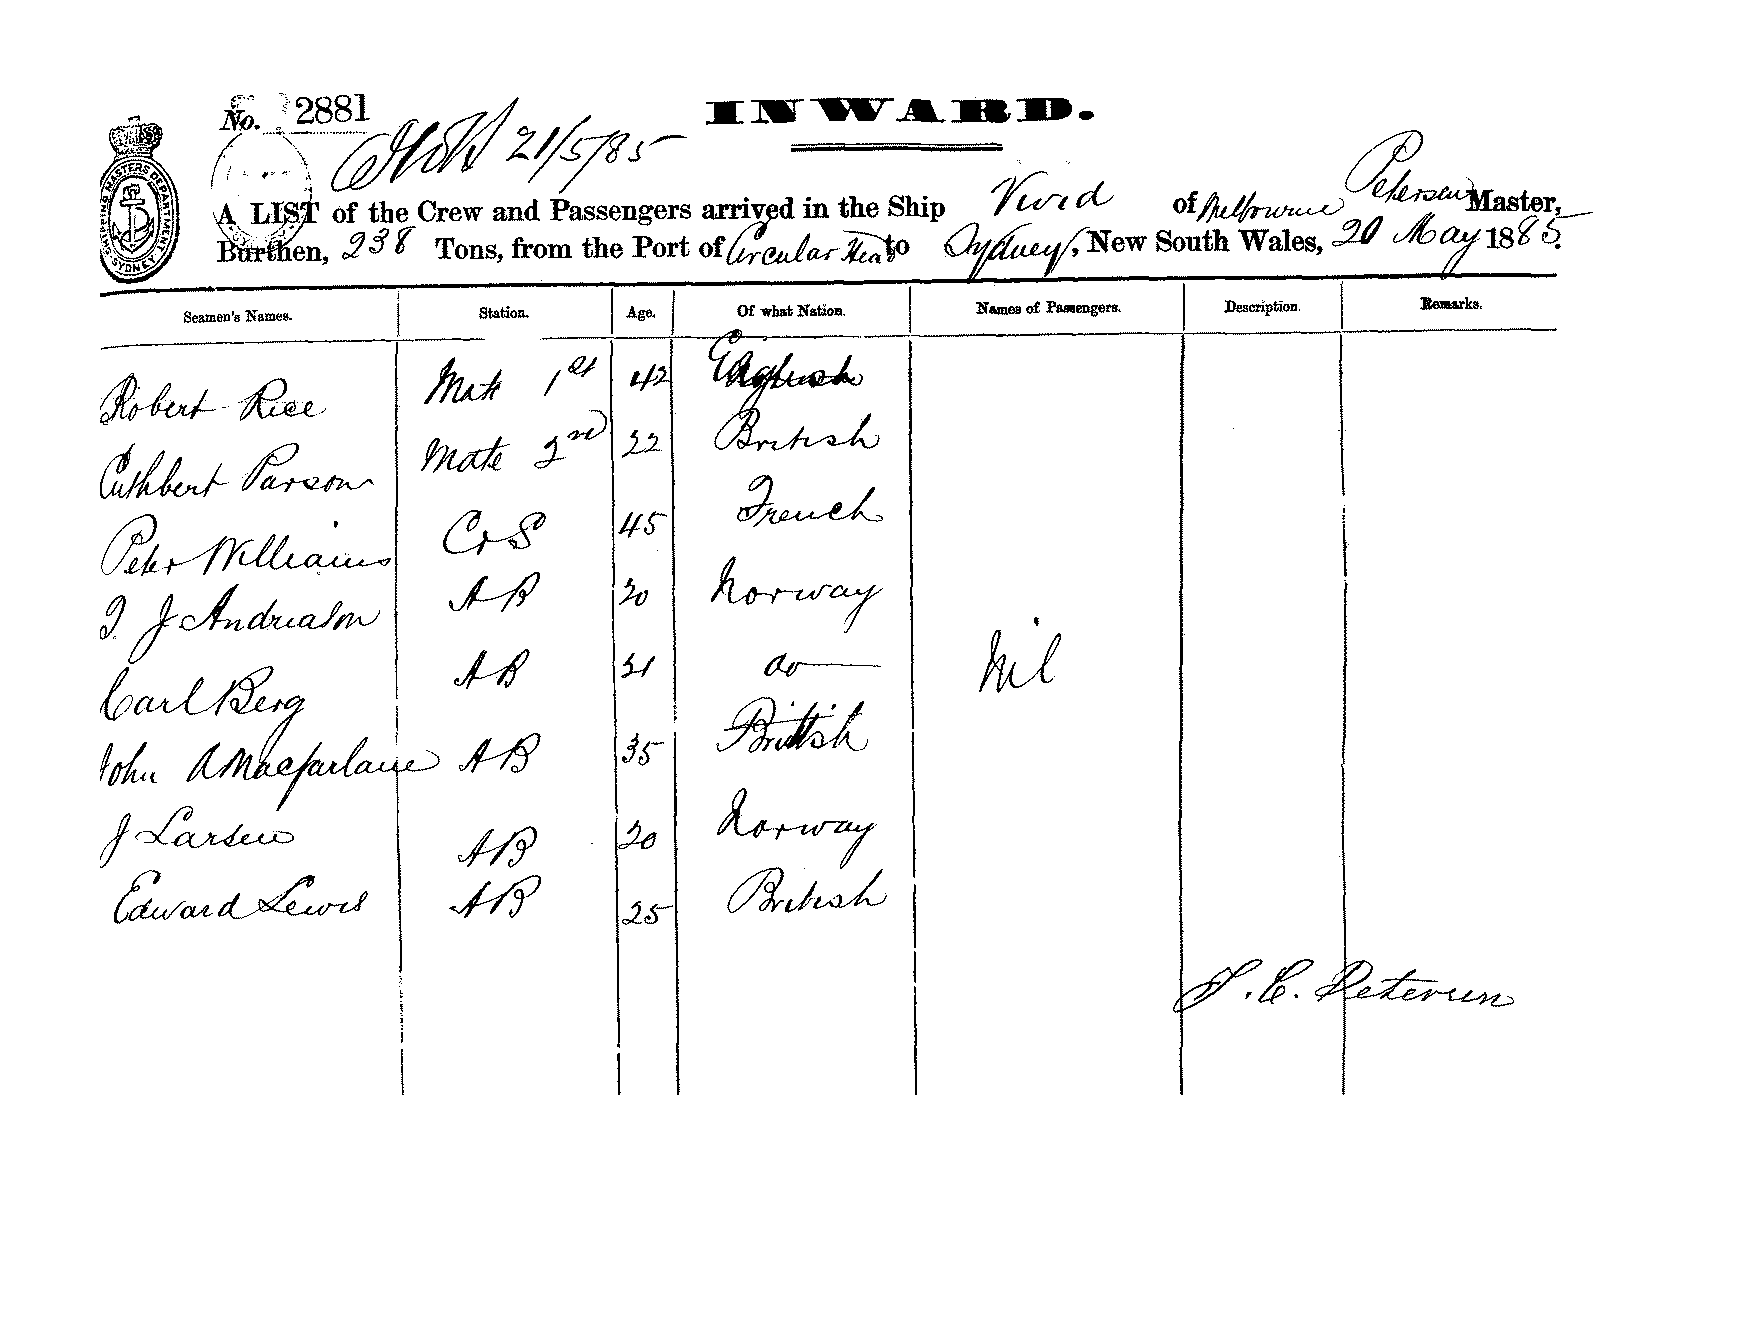 No. 2881
INWARD.
21/5/85
SHIPPING MASTERS DEPARTMENT SYDNEY
A LIST of the Crew and Passengers arrived in the Ship Vivid of Melbourne Petersen Master,
Burthen, 238 Tons, from the Port of Circular Head to Sydney, New South Wales, 20 May 1885.
Seamen's Names. Station. Age. Of what Nation. Names of Passengers. Description. Remarks.
Robert Rice Mate 1st 42 English
Cuthbert Parson Mate 2nd 22 British
Peter Williams C & S 45 French
J Andreason AB 20 Norway
Carl Berg AB 21 do
Nil
John A Macfarlane AB 35 British
J Larsen AB 20 Norway
Edward Lewis AB 25 British
C. Petersen